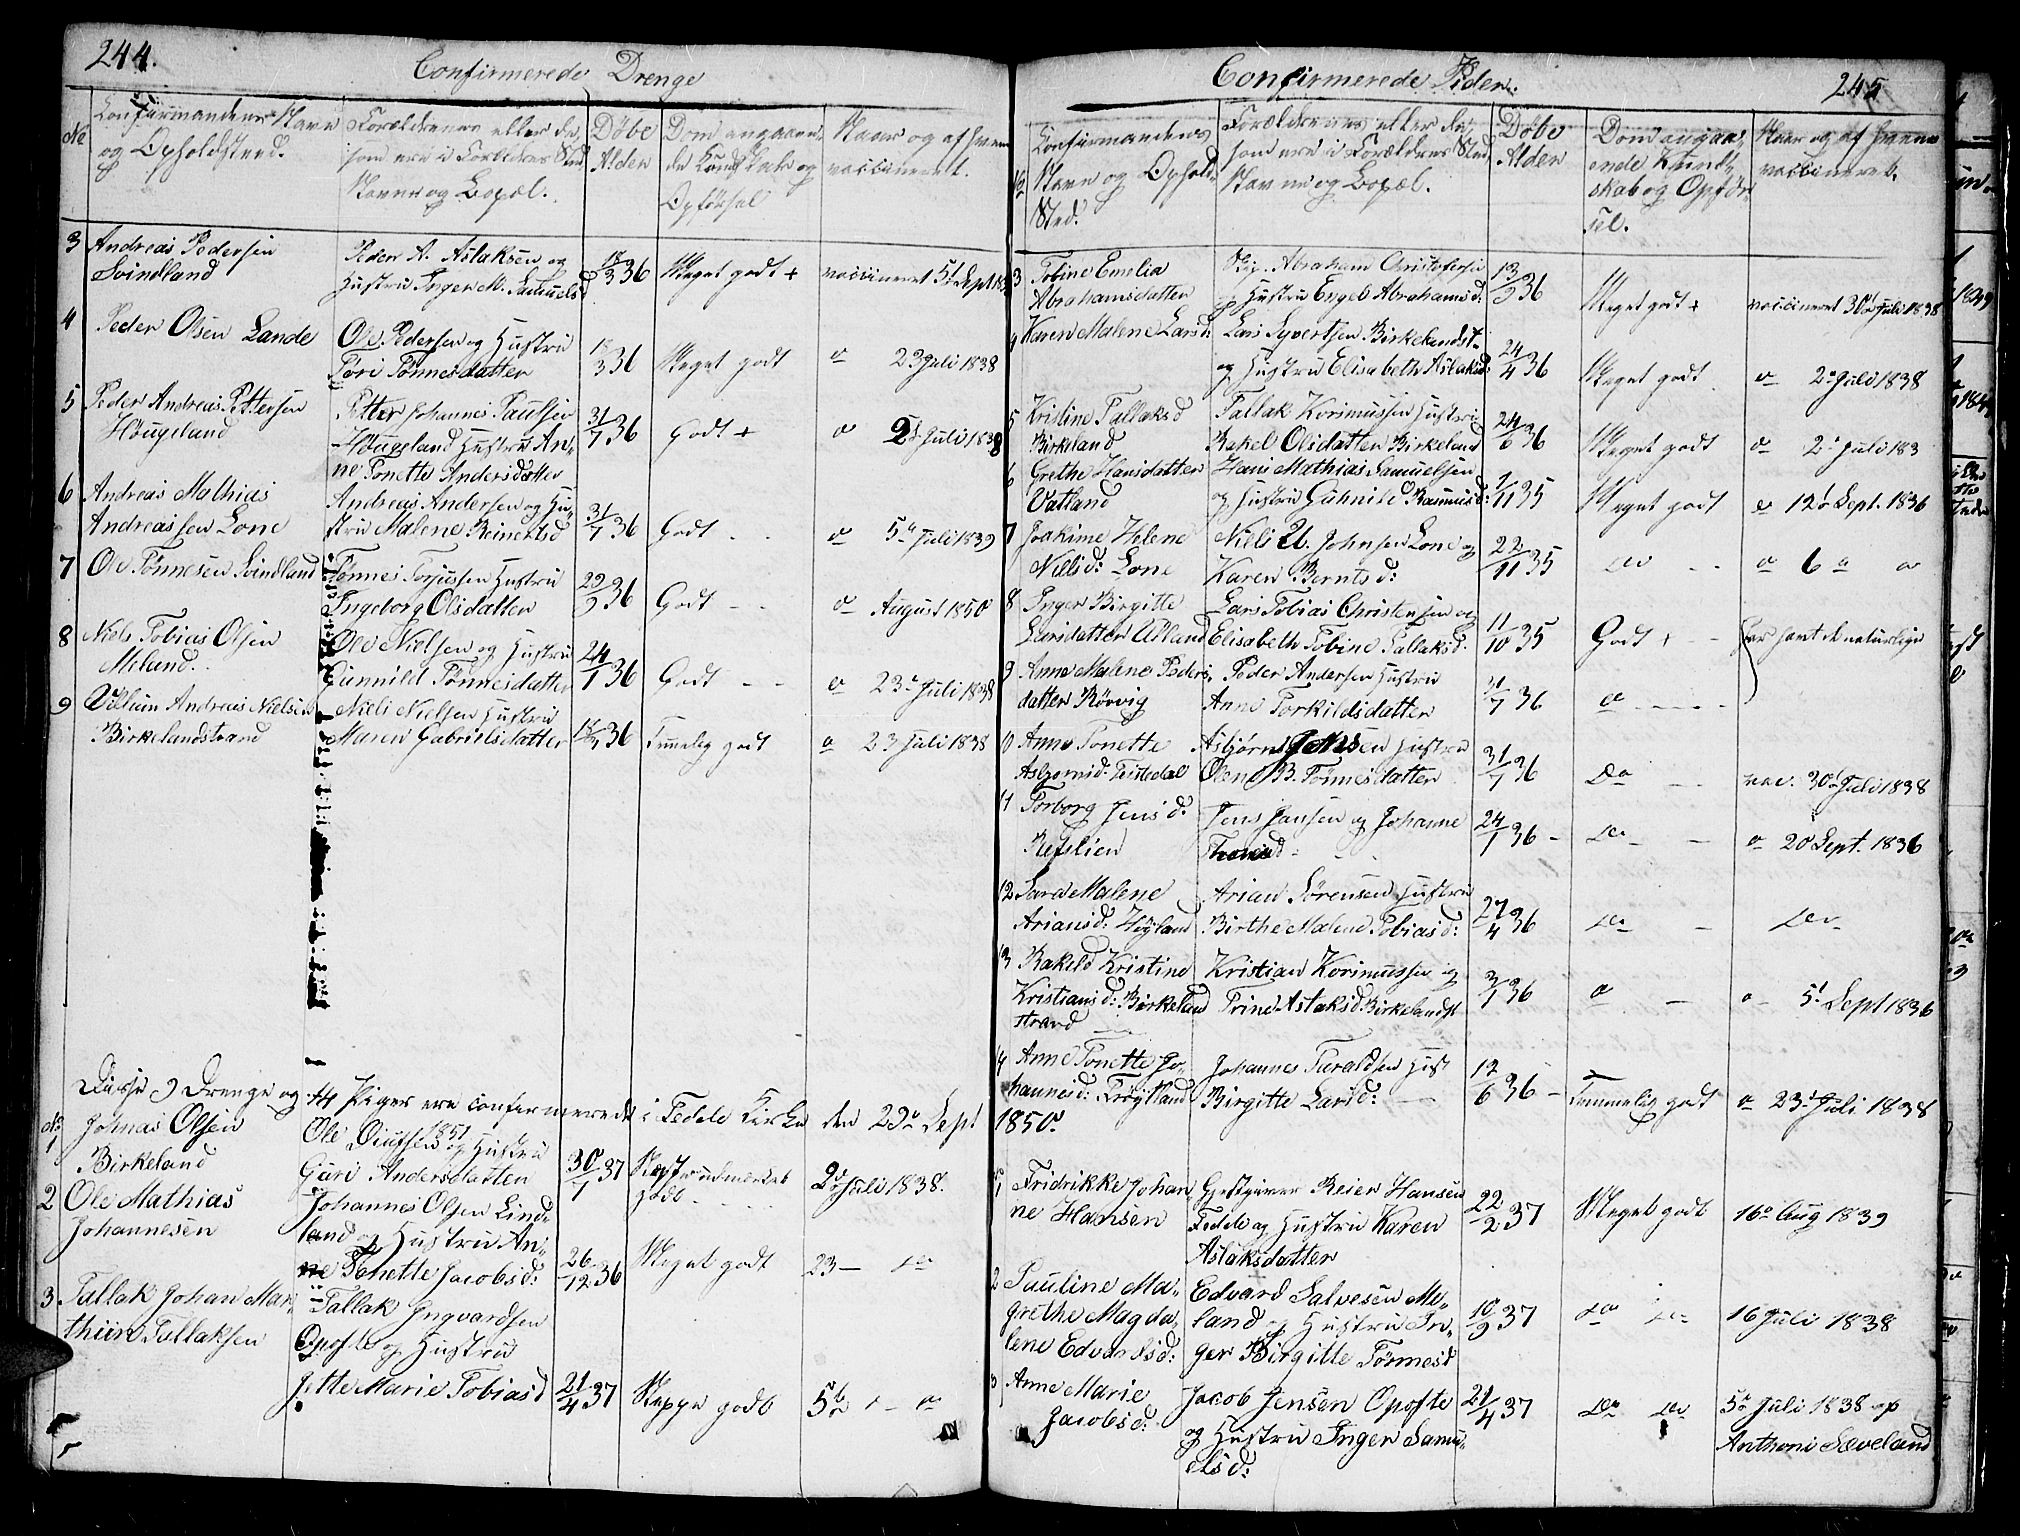 244.
Confirmerede Drenge
No
Confirmandens Navn
og Opholdsted.
Forældrenes eller de,
som ere i Forældres Sted
Navne og Bopæl.
Døbe
Alder
Dom angaaen-
de Kundskab og
Opførsel
Naar og af hvem
vaccineret.
3 Andreas Pedersen
Svindland
Peder A. Aslaksen og
Hustru Inger M. Samuelsd
18/3 36
Meget godt +
vaccineret 5t Sept
4 Peder Olsen Lande
Ole Pedersen og Hustru
Tori Tønnesdatter
3 36
Meget godt
23 Juli 1838
5 Peder Andreas Pettersen
Høugeland
Petter Johannes Paulsen
Høugeland Hustru An-
ne Tonette Andersdatter
31/7 36
Godt +
2 Juli 1838
6 Andreas Mathias
Andreassen Lone
Andreas Andersen og Hu-
stru Malene Reinertsd
31/7 36
Godt
5 Juli 1839
7 Ole Tønnesen Svindland
Tønnes Torjussen Hustru
Ingeborg Olsdatter
29/9 36
Godt
August 1850
8 Niels Tobias Olsen
Meland.
Ole Nielsen og Hustru
Gunnild Tønnesdatter
24/1 36
Godt
23 Juli 1838
9 Villum Andreas Nielsen
Birkelandstrand
Niels Nielsen Hustru
Maren Gabrielsdatter
36
Temelig godt
23 Juli 1838
Disse 9 Drenge og 14 Piger ere confirmerede i Fedde Kirke den 29 Sept 1850.
1851
No
1 Johnas Olsen
Birkeland
Ole Diufsen og Hustru
Guri Andersdatter
30/1 37
Meget udmærket
godt
2 Juli 1838.
2 Ole Mathias
Johannesen
Johannes Olsen Lind-
land og Hustru An-
ne Tonette Jacobsd:
26/12 36
Meget godt
23
3 Tallak Johan Mar-
thin Tallaksen
Tallak Ingvardsen
Opofte og Hustru
Jette Marie Tobiasd
21/4 37
Meget godt
5
245
Confirmerede Piger.
No
Confirmandens
Navn og Ophold-
Sted.
Forældrenes eller de
som ere i Forældres Sted
Navne og Bopæl.
Døbe
Alder
Dom angaa-
ende Kund-
skab og Opfør-
sel.
Naar og af hvem
vaccineret.
3 Tobine Emelia
Abrahamsdatter
Abraham Christofersen
og Hustru Engel Abrahamsd:
13/3 36
Meget godt +
vaccineret 30 Juli 1838
4 Karen Malene Larsd:
Lars Syvertsen Birkelandst-
og Hustru Elisabeth Aslaksd:
24/4 36
Meget godt
2 Juli 1838
5 Kristine Tallaksd
Birkeland
Tallak Korimussen Hustru
Rakel Olsdatter Birkeland
24/6 36
Meget godt
2 Juli 183
6 Grethe Hansdatter
Vatland
Hans Mathias Samuelsen
og Hustru Gunnild Rasmusd:
1/11 35
Meget godt
12 Sept. 1836
7 Joakime Helene
Nielsd: Lone
Niels U. Johnsen Lone og
Karen Berntsd:
22/11 35
6
8 Inger Birgitte
Larsdatter Udland
Lars Tobias Christensen og
Elisabeth Tobine Tallaksd.
11/10 35
Godt +
har havt de naturlige
9 Anne Malene Peders-
datter Rørvig
Peder Andersen Hustru
Anne Torkildsdatter
31/7 36
10 Anne Tonette
Asbjørnsd: Feistedal
Asbjørn Jensen Hustru
Olene B. Tønnesdatter
31/7 36
Do
vac. 30 Juli 1838
11 Torborg Jensd:
Refslien
Jens Jansen og Johanne
24/1 36
Do
20 Sept. 1836
12 Sara Malene
Ariansd: Høyland
Arian Sørensen Hustru
Birthe Malene Tobiasd:
27/4 36
Do
Do
13 Rakeld Kristine
Kristiansd: Birkeland
strand
Kristian Korimussen og
Trine Aslaksd: Birkelandst
3/1 36
5 Sept 1836
14 Anne Tonette Jo-
hannesd: Frøytland
Johannes Turaldsen Hust
Birgitte Larsd:
12/6 36
Temmelig godt
23 Juli 1838
1 Fridrikke Johan
ne Hansen
Gjestgiver Reier Hansen
Fedde og Hustru Karen
Aslaksdatter
22/2 37
Meget godt
16 Aug 1839
2 Pauline Ma-
grethe Magda-
lene Edvardsd:
Edvard Salvesen Me-
land og Hustru In-
ger Birgitte Tønnesd
10/3 37
Do Do
16 Juli 1838
3 Anne Marie
Jacobsd:
Jacob Jensen Opofte
og Hustru Inger Samu-
elsd:
21/4 37
Do Do
5 Juli 1838 af
Anthoni Sæveland